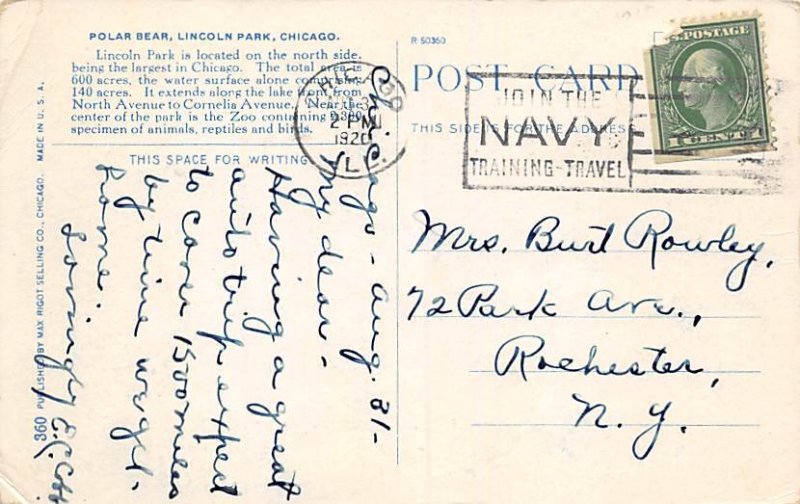 POLAR BEAR, LINCOLN PARK, CHICAGO.
Lincoln Park is located on the north side,
being the largest in Chicago. The total area is
600 acres, the water surface alone comprising
140 acres. It extends along the lake front from
North Avenue to Cornelia Avenue. Near the
center of the park is the Zoo containing 2,300
specimen of animals, reptiles and birds.
THIS SPACE FOR WRITING
Chicago - Aug. 31-
My dear -
Having a great
auto trip expect
to cover 1500 miles
by time we get
home.
Lovingly E.C.
360 PUBLISHED BY MAX RIGOT SELLING CO., CHICAGO. MADE IN U. S. A.
R-50360
POST CARD
THIS SIDE IS FOR THE ADDRESS
CHICAGO
2 PM
1920
IL
JOIN THE
NAVY
TRAINING-TRAVEL
U.S. POSTAGE
1 CENT 1
Mrs. Burt Rowley,
72 Park Ave.,
Rochester,
N. Y.